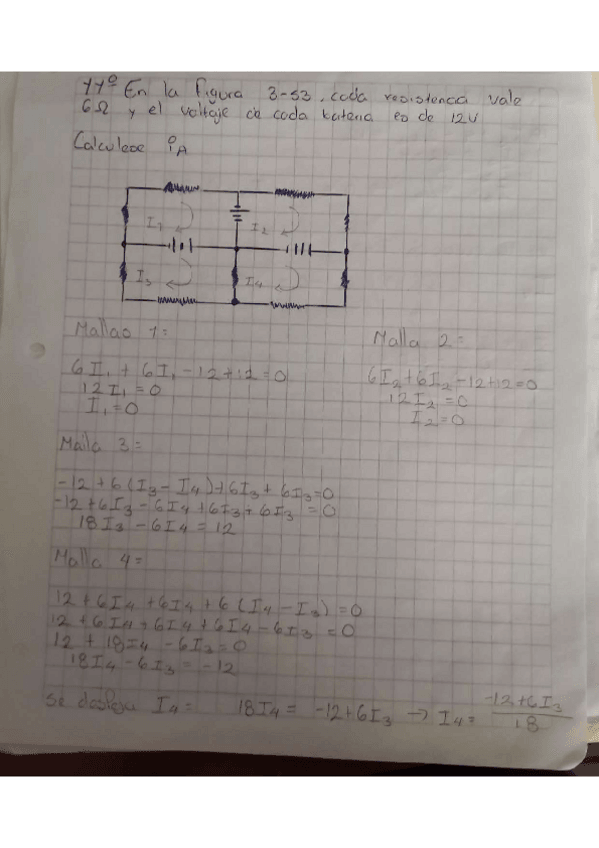 11º En la Figura 3-53, cada resistencia vale
6Ω y el voltaje de cada bateria es de 12V
Calculese i_A
I₁ I₂
I₃ I₄
Mallas 1=
6I₁ + 6I₁ - 12 + 12 = 0
12I₁ = 0
I₁ = 0
Malla 2=
6I₂ + 6I₂ - 12 + 12 = 0
12I₂ = 0
I₂ = 0
Malla 3=
-12 + 6(I₃ - I₄) + 6I₃ + 6I₃ = 0
-12 + 6I₃ - 6I₄ + 6I₃ + 6I₃ = 0
18I₃ - 6I₄ = 12
Malla 4=
12 + 6I₄ + 6I₄ + 6(I₄ - I₃) = 0
12 + 6I₄ + 6I₄ + 6I₄ - 6I₃ = 0
12 + 18I₄ - 6I₃ = 0
18I₄ - 6I₃ = -12
Se despeja I₄= 18I₄ = -12 + 6I₃ → I₄ = -12 + 6I₃ / 18